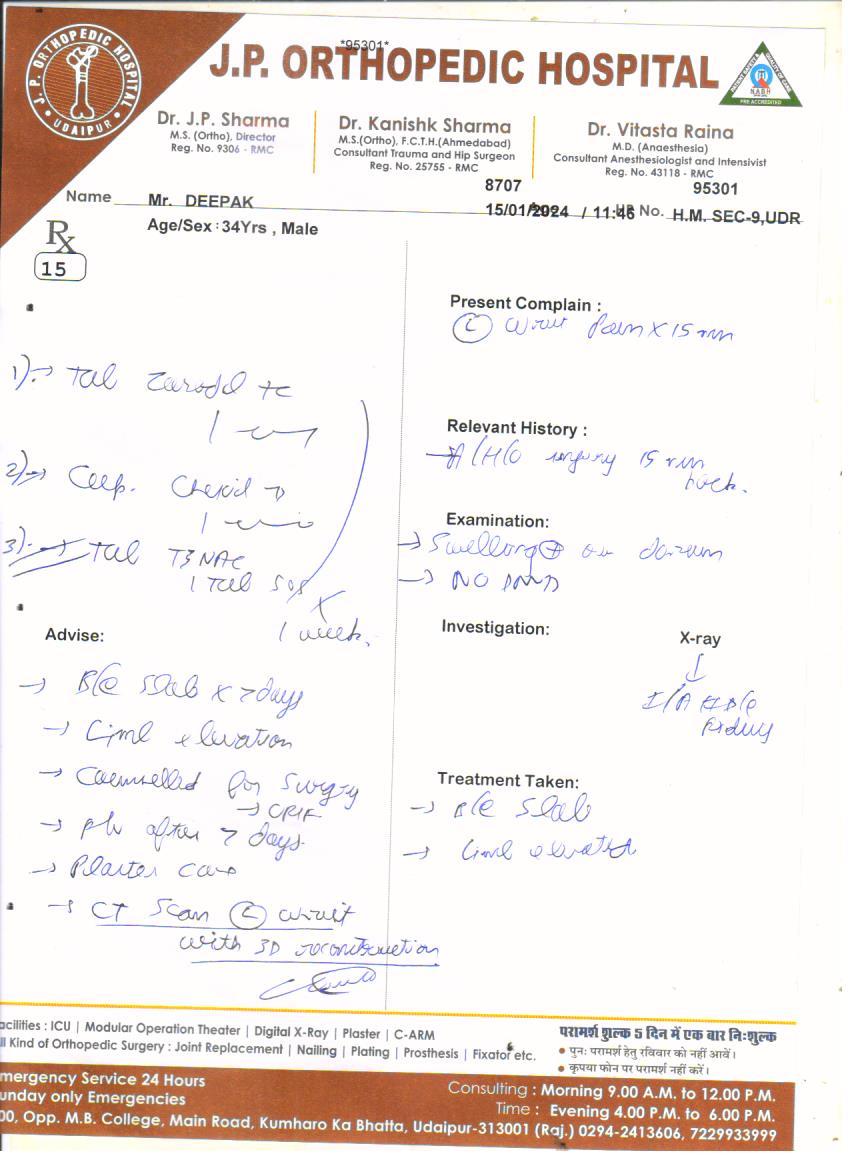 J. P. ORTHOPEDIC HOSPITAL
UDAIPUR
*95301*
J.P. ORTHOPEDIC HOSPITAL
NABH
PRE ACCREDITED
Dr. J.P. Sharma
M.S. (Ortho), Director
Reg. No. 9306 - RMC
Dr. Kanishk Sharma
M.S.(Ortho), F.C.T.H.(Ahmedabad)
Consultant Trauma and Hip Surgeon
Reg. No. 25755 - RMC
Dr. Vitasta Raina
M.D. (Anaesthesia)
Consultant Anesthesiologist and Intensivist
Reg. No. 43118 - RMC
8707 95301
Name Mr. DEEPAK 15/01/2024 / 11:46 No. H.M. SEC-9,UDR
Age/Sex : 34Yrs , Male
Rx
15
Present Complain :
(L) wrist Pain X 15
1) → Tab
Relevant History :
A/H/O injury 15
back.
2) → Cap.
Examination:
→ Swelling ⊕ on dorsum
→ NO
3) → Tab
1 Tab SOS
X
1 week.
Advise:
→ B/E Slab x 7 days
→ Limb elevation
→ Counselled for Surgery
→ CRIF
→ after 7 days.
→ Plaster care
→ CT Scan (L) wrist
with 3D reconstruction
Investigation:
X-ray
Treatment Taken:
→ B/E Slab
→ Limb elevation
acilities : ICU | Modular Operation Theater | Digital X-Ray | Plaster | C-ARM
ll Kind of Orthopedic Surgery : Joint Replacement | Nailing | Plating | Prosthesis | Fixator etc.
परामर्श शुल्क 5 दिन में एक बार निःशुल्क
• पुनः परामर्श हेतु रविवार को नहीं आवें।
• कृपया फोन पर परामर्श नहीं करें।
mergency Service 24 Hours
unday only Emergencies
Consulting : Morning 9.00 A.M. to 12.00 P.M.
Time : Evening 4.00 P.M. to 6.00 P.M.
00, Opp. M.B. College, Main Road, Kumharo Ka Bhatta, Udaipur-313001 (Raj.) 0294-2413606, 7229933999